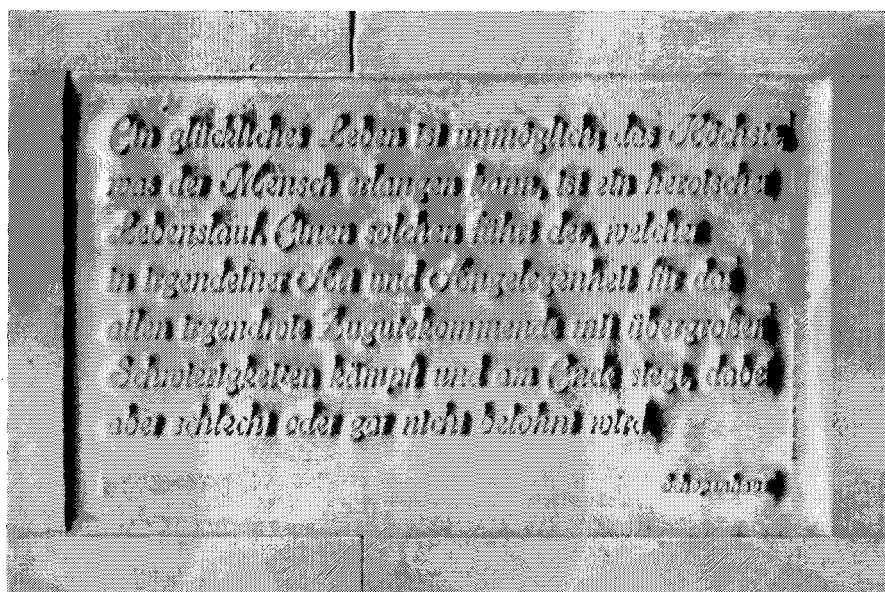 Ein glückliches Leben ist unmöglich, das Höchste
was der Mensch erlangen kann, ist ein heroischer
Lebenslauf. Einen solchen führt der, welcher
in irgendeiner Art und Angelegenheit für das
allen irgendwie Zugutekommende mit übergroßen
Schwierigkeiten kämpft und am Ende siegt, dabei
aber schlecht oder gar nicht belohnt wird
Schopenhauer